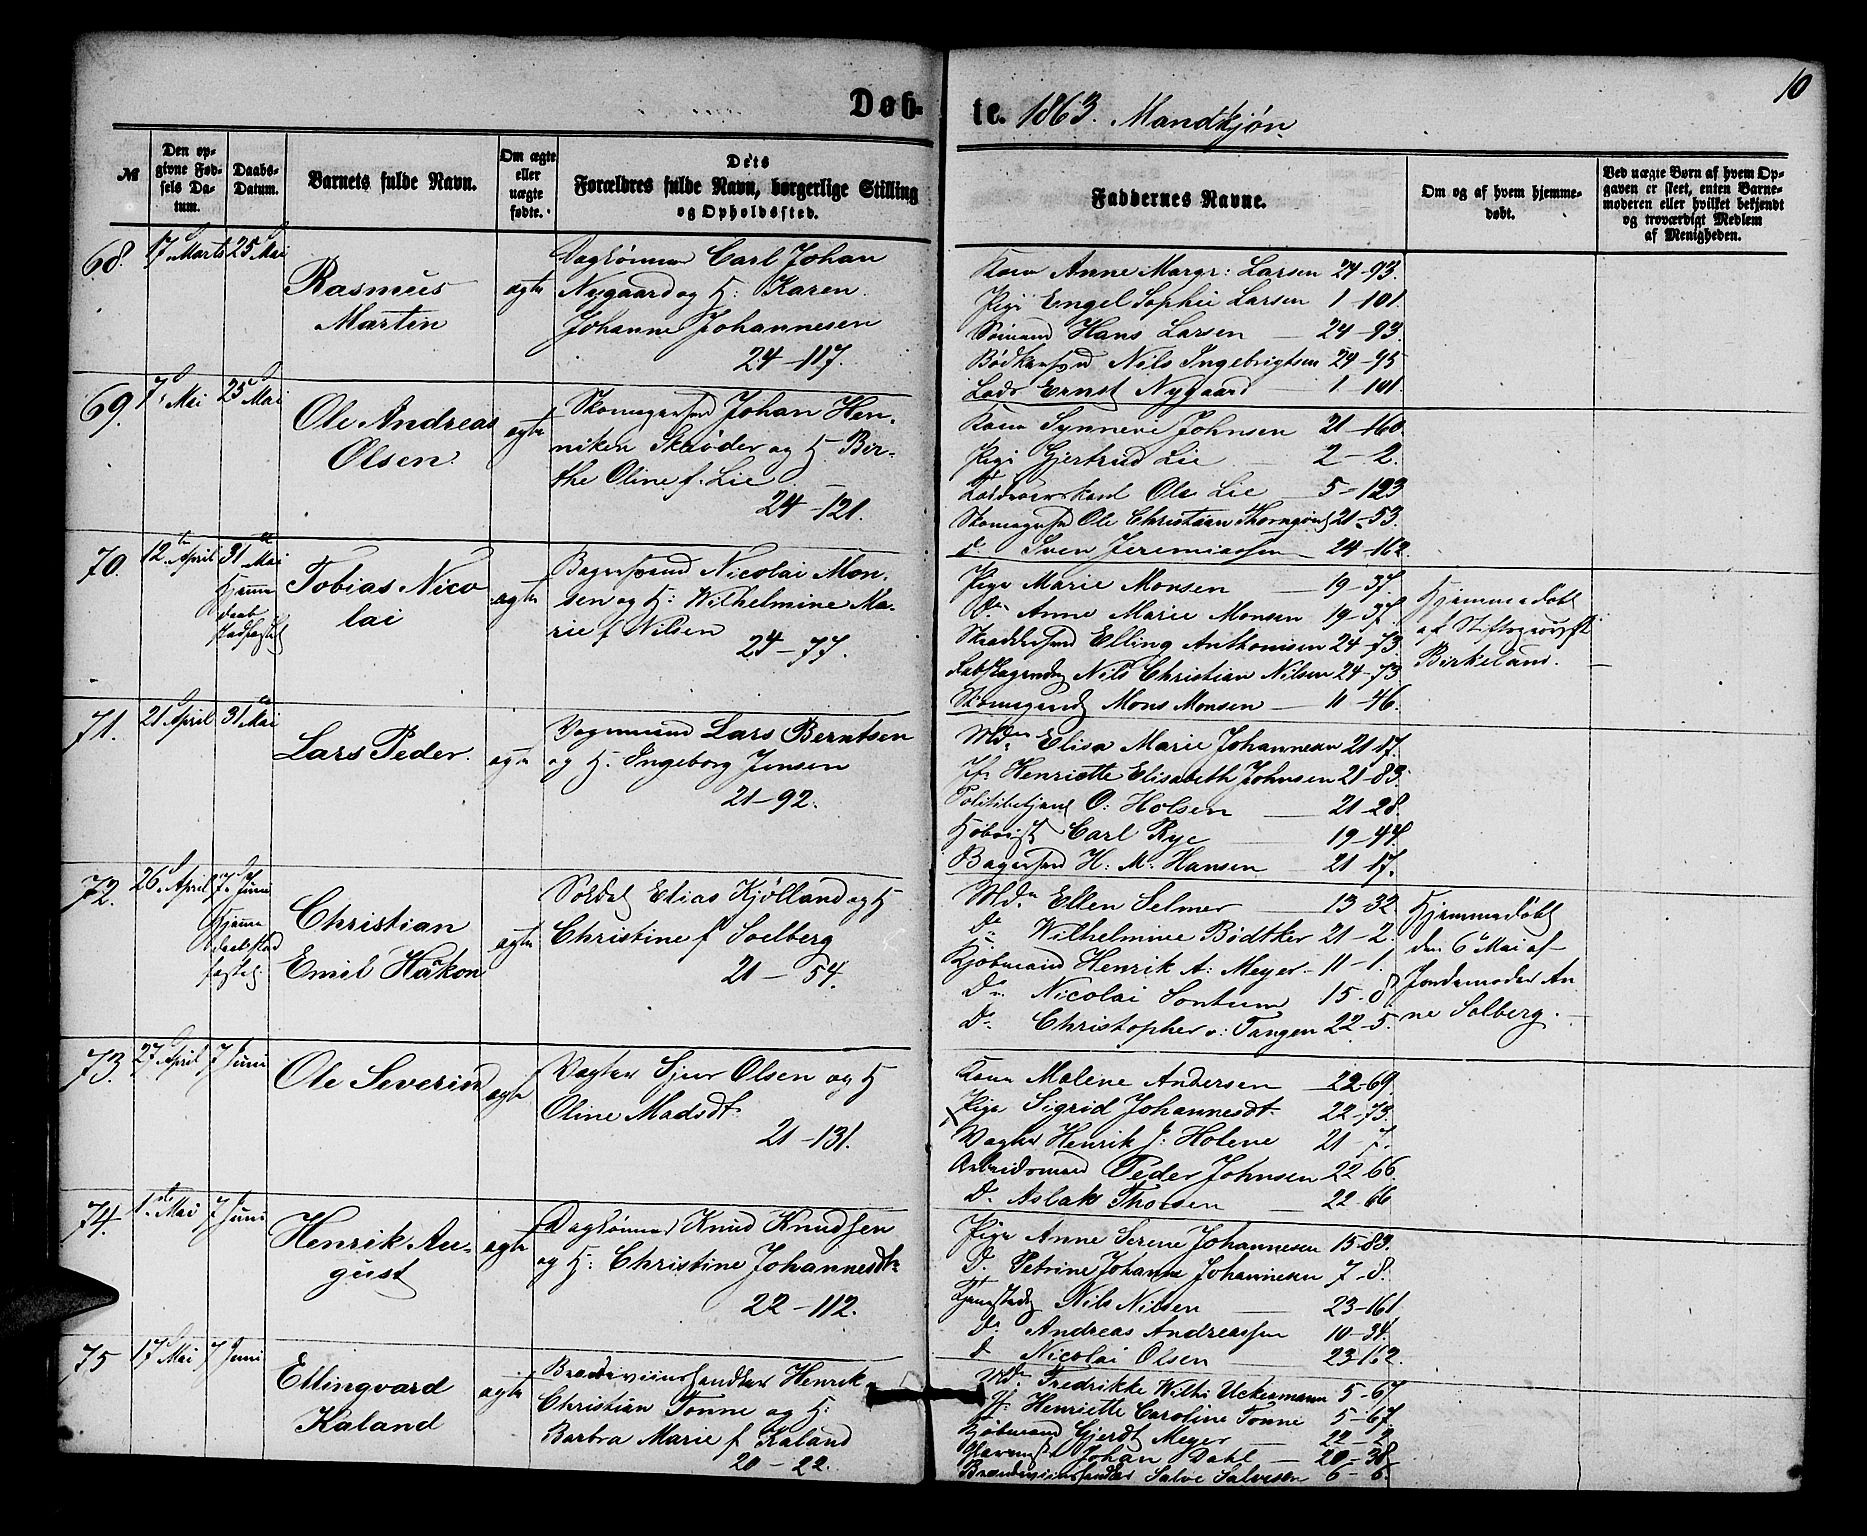 10
Døbte. 1863. Mandkjøn
№
Den opgivne Fødsels Datum.
Daabs-Datum.
Barnets fulde Navn.
Om ægte eller uægte fødte.
Dets Forældres fulde Navn, borgerlige Stilling og Opholdssted.
Faddernes Navne.
Om og af hvem hjemmedøbt.
Ved uægte Børn af hvem Opgaven er skeet, enten Barnemoderen eller hvilket bekjendt og troværdigt Medlem af Menigheden.
68. 17 Marts 25 Mai
Rasmus
Martin
ægte
Carl Johan
Nygaard og H: Karen
Johanne Johannesen
24-117.
Kone Anne Margr: Larsen 24-93.
Pige Engel Sophie Larsen 1-101.
Sømand Hans Larsen 24-93.
Bødkersvd Nils Ingebrigtsen 24-95
Lods Ernst Nygaard 1-101
69. 7 Mai 25 Mai
Ole Andreas
Olsen
ægte
Skomagersvd Johan Hen-
riken Skrøder og H. Bir-
the Oline f. Lie
24-121.
Kone Synneve Johnsen 21-160
Pige Gjertrud Lie 2-2.
Ole Lie 5-123
Skomagersvd Ole Christian 21-53.
d. Sven Jeremiassen 24-162
70. 12 April 31 Mai
Hjemme
daab
stadfæstet
Tobias Nico
lai
ægte
Bagersvend Nicolai Mon-
sen og H: Wilhelmine Ma-
rie f Nilsen
24-77.
Pige Marie Monsen 19-37.
Do Anne Marie Monsen 19-37.
Skræddersvd Elling Anthonisen 24-73
Nils Christian Nilsen 24-73
Mons Monsen 11-46.
Hjemmedøbt
af Stiftsprovst
Birkeland.
71. 21 April 31 Mai
Lars Peder.
ægte
Vognmand Lars Berntsen
og H. Ingeborg Jensen
21-92.
Md. Elisa Marie Johannesen 21-17.
Jf. Henriette Elisabeth Johnsen 21-83.
Politibetjent O: Holsen 21-28.
Carl Rye 19-44.
Bagersvd H: M. Hansen 21-17.
72. 26 April 7. Juni
Hjemme
daab stad
fæstet.
Christian
Emil Håkon
ægte
Soldat Elias Kjølland og H
Christine f Soelberg
21-54.
Md. Ellen Selmer 13-32
D. Wilhelmine Bødtker 21-2.
Kjøbmand Henrik A: Meyer 11-1.
D. Nicolai Sontum 15-8
D. Christopher v: Tangen 22-5.
Hjemmedøbt
den 6 Mai af
Jordemoder An
ne Solberg.
73. 27 April 7 Juni
Ole Severin
ægte
Vægter Sjur Olsen og H
Oline Madsdt.
21-131.
Kone Malene Andersen 22-69.
Pige Sigrid Johannesdt 22-73.
Vægter Henrik J: Holene 21-7.
Arbeidsmand Peder Johnsen 22-66
D. Aslak Thorsen 22-66
74. 1ste Mai 7 Juni
Henrik Au-
gust
ægte
Daglønner Knud Knudsen
og H: Christine Johannesdt
22-112.
Pige Anne Serene Johannesen 15-83.
D. Petrine Johanne Johannesen 7-8.
Nils Nilsen 23-161
D. Andreas Andreassen 10-34.
d Nicolai Olsen 23-162.
75 17 Mai 7 Juni
Ellingvard
Kaland
ægte
Brændeviinshandler Henrik
Christian Tonne og H:
Barbra Marie f Kaland
20-22.
Md. Fredrikke Wilh: Uckermann 5-67
Jf. Henriette Caroline Tonne 5-67.
Kjøbmand Gjerdt Meyer 22-2.
Johan Dahl 20-38
Brændeviinshandler Salve Salvesen 6-6.